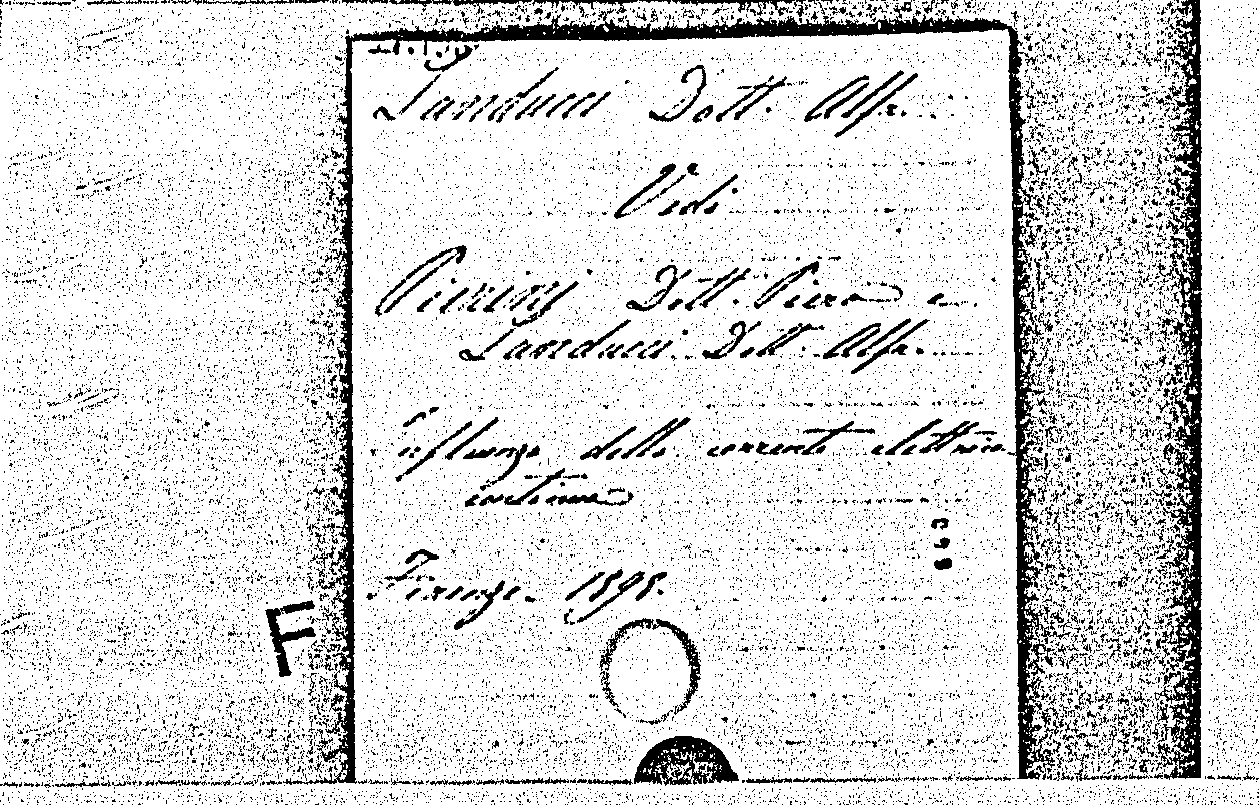 Landucci Dott. Alfr.
Vedi
Pierini Dott. Piero e
Landucci Dott. Alfr.
Influenza della corrente elettrica
continua
Firenze. 1898.
F